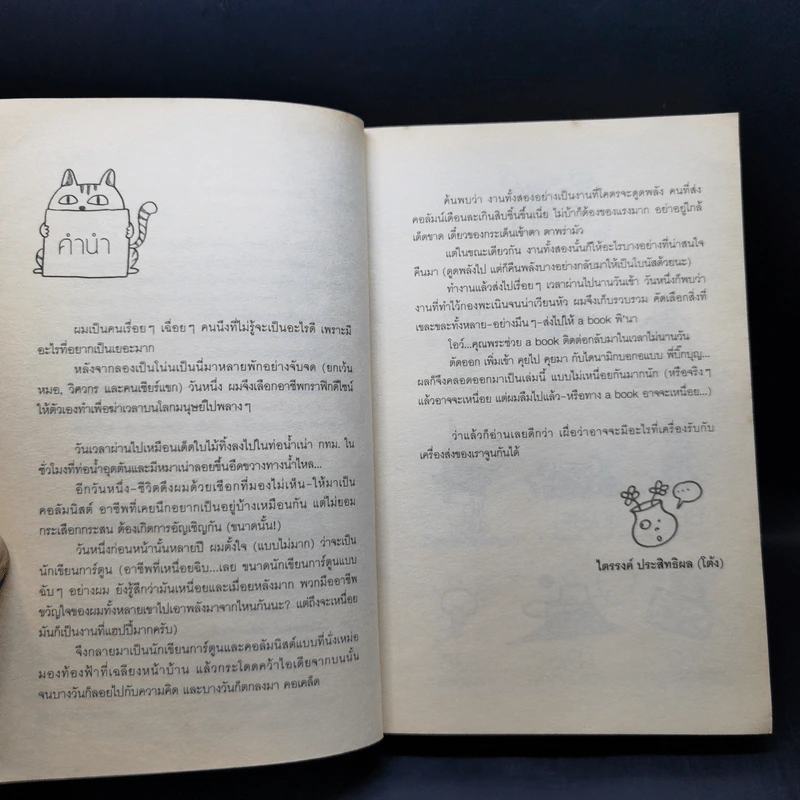 คำนำ
ผมเป็นคนเรื่อยๆ เฉื่อยๆ คนนึงที่ไม่รู้จะเป็นอะไรดี เพราะมี
อะไรที่อยากเป็นเยอะมาก
หลังจากลองเป็นโน่นเป็นนี่มาหลายพักอย่างจับจด (ยกเว้น
หมอ, วิศวกร และคนเชียร์แขก) วันหนึ่ง ผมจึงเลือกอาชีพกราฟิกดีไซน์
ให้ตัวเองทำเพื่อฆ่าเวลาบนโลกมนุษย์ไปพลางๆ
วันเวลาผ่านไปเหมือนเด็ดใบไม้ทิ้งลงไปในท่อน้ำเน่า กทม. ใน
ชั่วโมงที่ท่อน้ำอุดตันและมีหมาเน่าลอยขึ้นอืดขวางทางน้ำไหล...
อีกวันหนึ่ง-ชีวิตดึงผมด้วยเชือกที่มองไม่เห็น-ให้มาเป็น
คอลัมนิสต์ อาชีพที่เคยนึกอยากเป็นอยู่บ้างเหมือนกัน แต่ไม่ยอม
กระเสือกกระสน ต้องเกิดการอัญเชิญกัน (ขนาดนั้น!)
วันหนึ่งก่อนหน้านั้นหลายปี ผมตั้งใจ (แบบไม่มาก) ว่าจะเป็น
นักเขียนการ์ตูน (อาชีพที่เหนื่อยฉิบ...เลย ขนาดนักเขียนการ์ตูนแบบ
ฉับๆ อย่างผม ยังรู้สึกว่ามันเหนื่อยและเมื่อยหลังมาก พวกมืออาชีพ
ขวัญใจของผมทั้งหลายเขาไปเอาพลังมาจากไหนกันนะ? แต่ถึงจะเหนื่อย
มันก็เป็นงานที่แฮปปี้มากครับ)
จึงกลายมาเป็นนักเขียนการ์ตูนและคอลัมนิสต์แบบที่นั่งเหม่อ
มองท้องฟ้าที่เฉลียงหน้าบ้าน แล้วกระโดดคว้าไอเดียจากบนนั้น
จนบางวันก็ลอยไปกับความคิด และบางวันก็ตกลงมา คอเคล็ด
ค้นพบว่า งานทั้งสองอย่างเป็นงานที่โคตรจะดูดพลัง คนที่ส่ง
คอลัมน์เดือนละเกินสิบชิ้นขึ้นเนี่ย ไม่บ้าก็ต้องของแรงมาก อย่าอยู่ใกล้
เด็ดขาด เดี๋ยวของกระเด็นเข้าตา ตาพร่ามัว
แต่ในขณะเดียวกัน งานทั้งสองนั้นก็ให้อะไรบางอย่างที่น่าสนใจ
คืนมา (ดูดพลังไป แต่ก็คืนพลังบางอย่างกลับมาให้เป็นโบนัสด้วยนะ)
ทำงานแล้วส่งไปเรื่อยๆ เวลาผ่านไปนานวันเข้า วันหนึ่งก็พบว่า
งานที่ทำไว้กองพะเนินจนน่าเวียนหัว ผมจึงเก็บรวบรวม คัดเลือกสิ่งที่
เขละขละทั้งหลาย-อย่างมึนๆ-ส่งไปให้ a book พิ'นา
โอว์...คุณพระช่วย a book ติดต่อกลับมาในเวลาไม่นานวัน
ตัดออก เพิ่มเข้า คุยไป คุยมา กับไดนามิกบอกอแบบ พี่บิ๊กบุญ...
ผลก็จึงคลอดออกมาเป็นเล่มนี้ แบบไม่เหนื่อยกันมากนัก (หรือจริงๆ
แล้วอาจจะเหนื่อย แต่ผมลืมไปแล้ว-หรือทาง a book อาจจะเหนื่อย...)
ว่าแล้วก็อ่านเลยดีกว่า เผื่อว่าอาจจะมีอะไรที่เครื่องรับกับ
เครื่องส่งของเราจูนกันได้
ไตรรงค์ ประสิทธิผล (โต้ง)